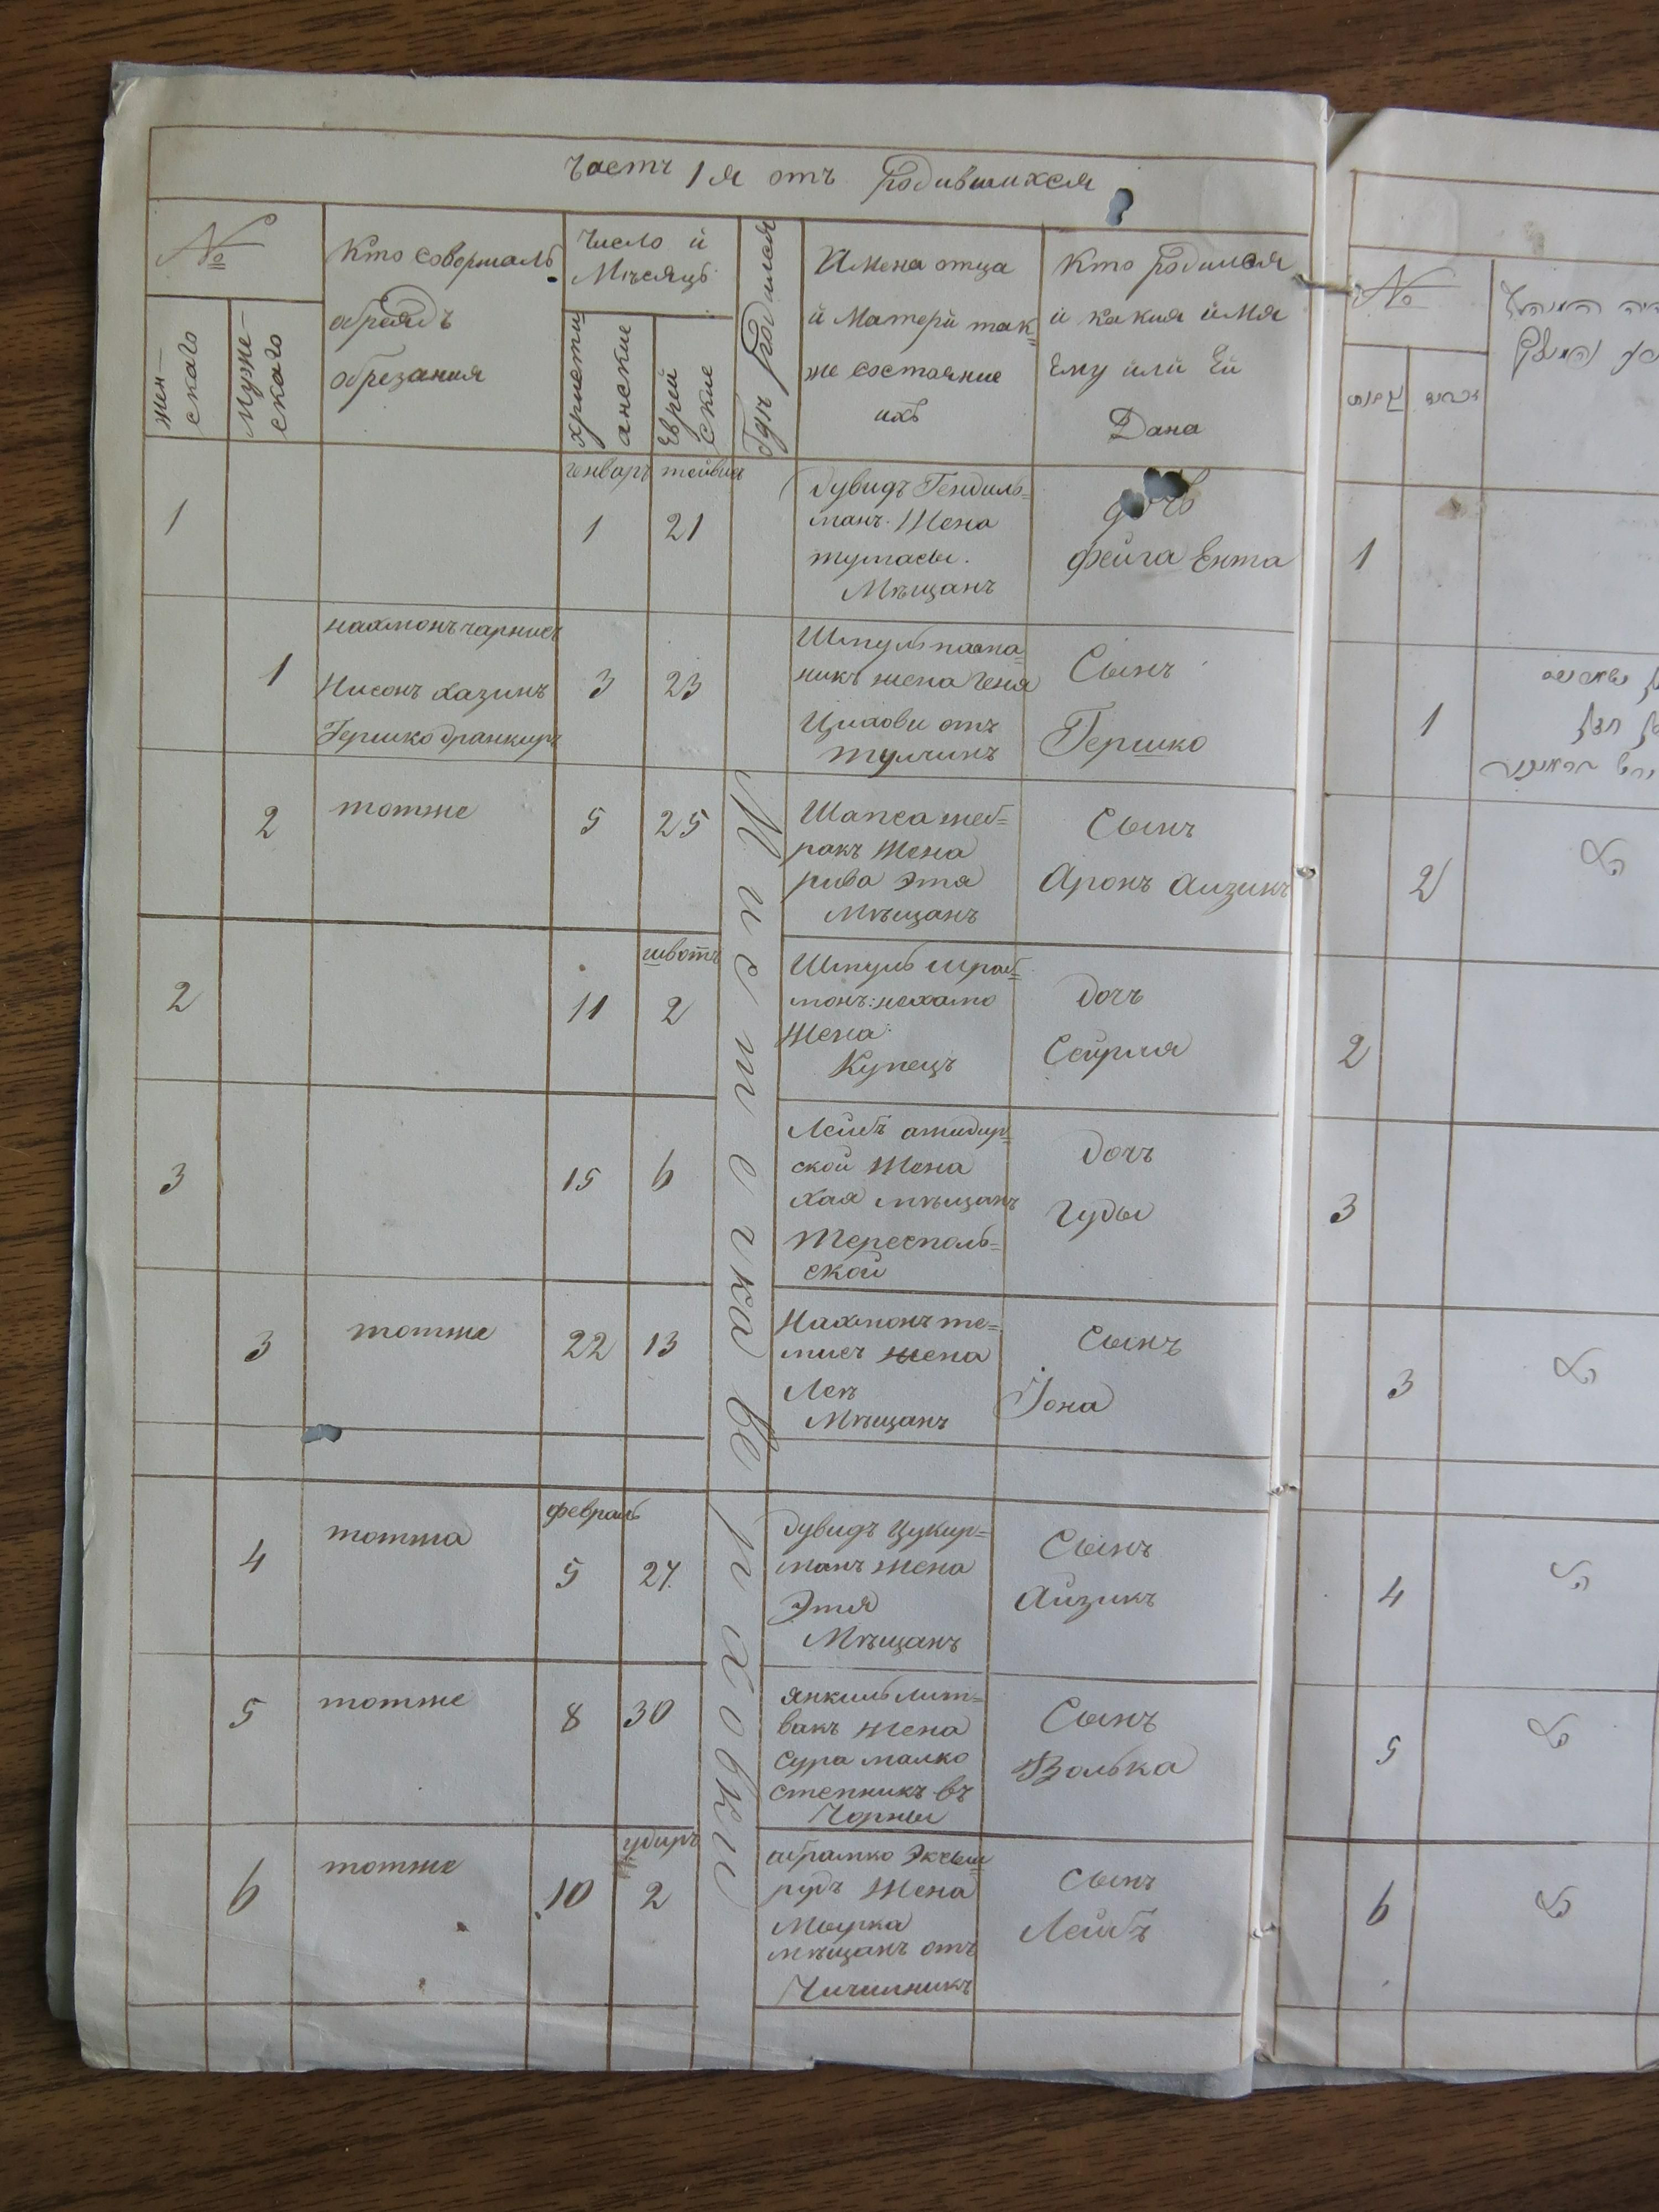 Часть 1я отъ родившихся
№
Жен-
ского
Муже-
ского
Кто совершалъ
обрядъ
обрезания
Число й
Мѣсяцъ
христи
анские
Еврей
ские
Гдѣ родился
Имена отца
й Матери так
же состояние
ихъ
Кто родился
й какия ймя
Ему или Ей
Дана
генварь
тейвис
1
1
21
дувидъ Гендиль=
манъ. Жена
Мѣщанъ
дочь
Фейга Ента
1
нахмонъ чарнис
Нисонъ хазинъ
Гершко дранкир
3
23
Шмуль
никъ жена Геня
отъ
тулчинъ
Сынъ
Гершко
2
тотже
5
25
Шапса жеб=
ракъ Жена
рива Этя
Мѣщанъ
Сынъ
Аронъ аизикъ
2
швотъ
11
2
Шмуль шраб=
монъ: нехамо
Жена:
Купецъ
дочь
Сейрля
3
15
6
Лейбъ
ской Жена
хая мѣщанъ
Тересполь=
ской
дочь
Гуды
3
тотже
22
13
Нахмонъ те=
лисъ жена
Лея
Мѣщанъ
Сынъ
Йона
4
тотжа
февраль
5
27.
дувидъ Цукир=
манъ жена
Этя
Мѣщанъ
Сынъ
Айзикъ
5
тотже
8
30
янкиль Лит=
вакъ жена
сура малко
степникъ въ
Чорны
Сынъ
Волька
6
тотже
удиръ
10
2
абрамко
рудъ Жена
Моурка
мѣщанъ отъ
Чичилникъ
Сынъ
Лейбъ
Местечка
№
1
1
2
2
3
3
4
5
6